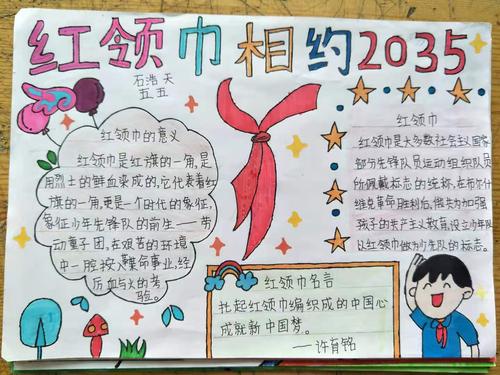 红领巾相约2035
石浩天
五五
红领巾的意义
红领巾是红旗的一角,是
用烈士的鲜血染成的,它代表着红
旗的一角,更是一个时代的象征,
象征少年先锋队的前生——劳
动童子团,在艰苦的环境
中一腔投入革命事业,经
历血与火的考
验。
红领巾
红领巾是大多数社会主义国家
部分先锋队员运动组织队员
所佩戴标志的统称,在布尔什
维克革命胜利后,做为加强
孩子的共产主义教育,设立少年队
以红领巾做为少先队的标志。
红领巾名言
扎起红领巾编织成的中国心
成就新中国梦。
——许有铭